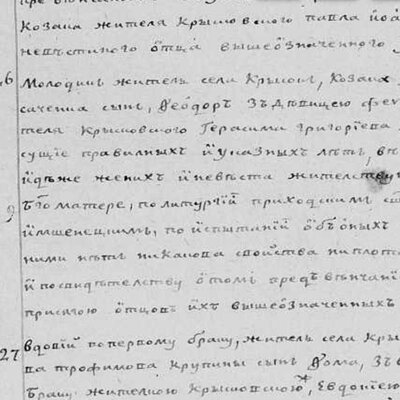 Козака жителя Крысовского павла
невѣстиного ѻтца вышеѻзначенного
6 Молодикъ житель села Крысокъ, Козака
сынъ, Ѳеѻдоръ зъ дѣвицею
теля Крысовского Герасима григорїева
сущїе правилныхъ и указныхъ лѣтъ,
идѣже женихъ и невѣста жителству
9 Бгоматере, по литургїй приходскимъ
по испытанїй ѻбъ ѻныхъ
ними нѣтъ никакова свойства ни плот
и по свидѣтелству ѻ томъ предъ вѣнчанї
присягою ѻтцовъ ихъ вышеѻзначенныхъ
27 вдовїй по первому браку, житель села Кры
ва трофимова сынъ Ѳома, зъ
браку жителкою Крысовскою, Евдокїею